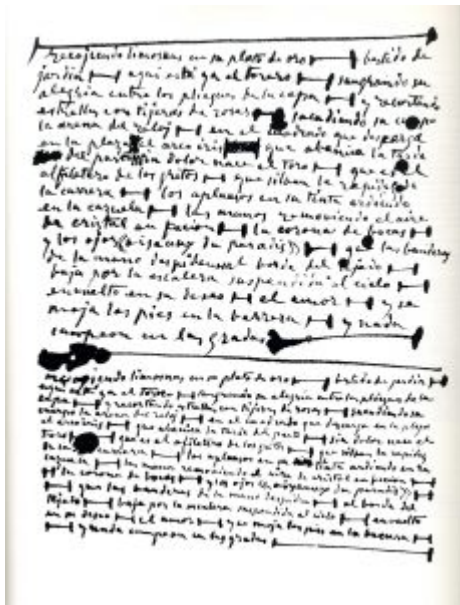 recojiendo limosnas en su plato de oro — bestido de
jardin — aqui está ya el torero — sangrando su
alegria entre los pliegues de la capa — y recortando
estrellas con tijeras de rosas — sacudiendo su cuerpo
la arena del reloj — en el cuadrado que descarga
en la plaza el arco iris — que abanica la tarde
del parto — sin dolor nace el toro — que es el
alfiletero de los gritos — que silban la rapidez de
la carrera — los aplausos en su tinta ardiendo
en la cazuela — las manos removiendo el aire
de cristal en fusion — la corona de bocas —
y los ojos (oiseaux du paradis) — que las banderas
de la mano despiden al borde del tejado —
baja por la escalera suspendida al cielo —
envuelto en su deseo — el amor — y se
moja los pies en la barrera — y nada
campeon en las gradas —
recojiendo limosnas en su plato de oro — bestido de jardin —
aqui está ya el torero — sangrando su alegria entre los pliegues de la
capa — y recortando estrellas con tijeras de rosas — sacudiendo su
cuerpo la arena del reloj — en el cuadrado que descarga en la plaza
el arco iris — que abanica la tarde del parto — sin dolor nace el
toro — que es el alfiletero de los gritos — que silban la rapidez
de su carrera — los aplausos en su tinta ardiendo en la
cazuela — las manos removiendo el aire de cristal en fusion —
la corona de bocas — y los ojos (oiseaux du paradis) —
— que las banderas de la mano despiden — al borde del
tejado — baja por la escalera suspendida al cielo — envuelto
en su deseo — el amor — y se moja los pies en la barrera —
— y nada campeon en las gradas —